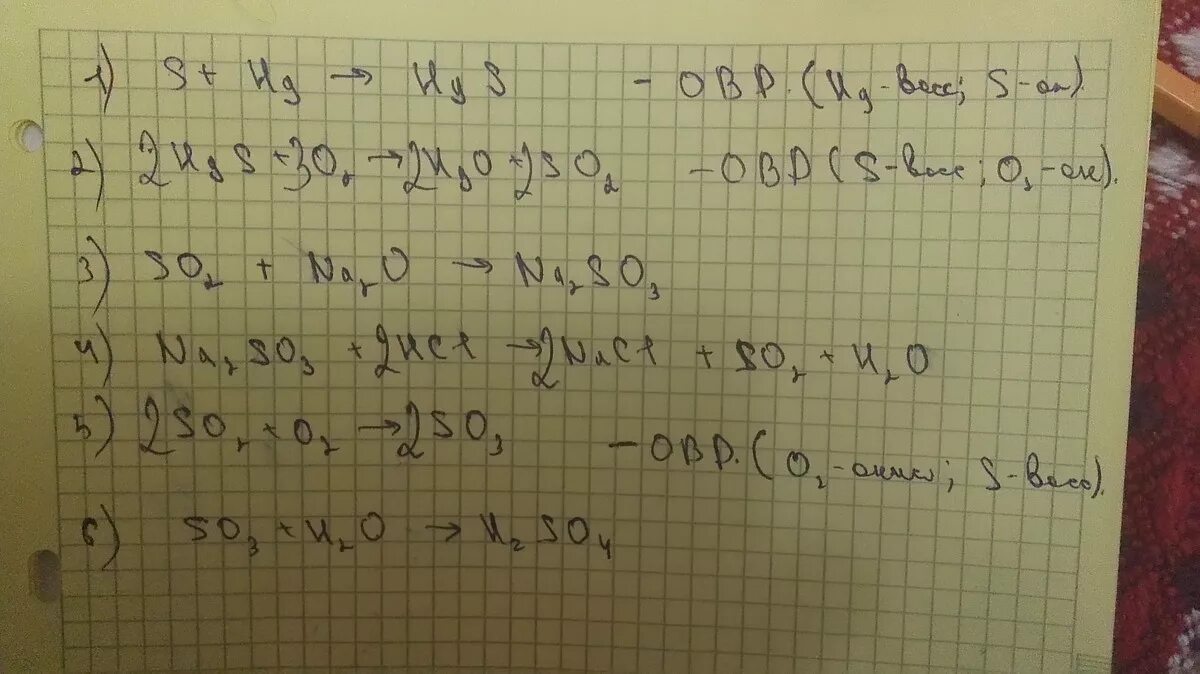 1) S + Hg → HgS - ОВР. (Hg-восс; S-ок).
2) 2HgS + 3O₂ → 2HgO + 2SO₂ - ОВР (S-восс; O₂-ок).
3) SO₂ + Na₂O → Na₂SO₃
4) Na₂SO₃ + 2HCl → 2NaCl + SO₂ + H₂O
5) 2SO₂ + O₂ → 2SO₃ - ОВР. (O₂-окис; S-восс).
6) SO₃ + H₂O → H₂SO₄